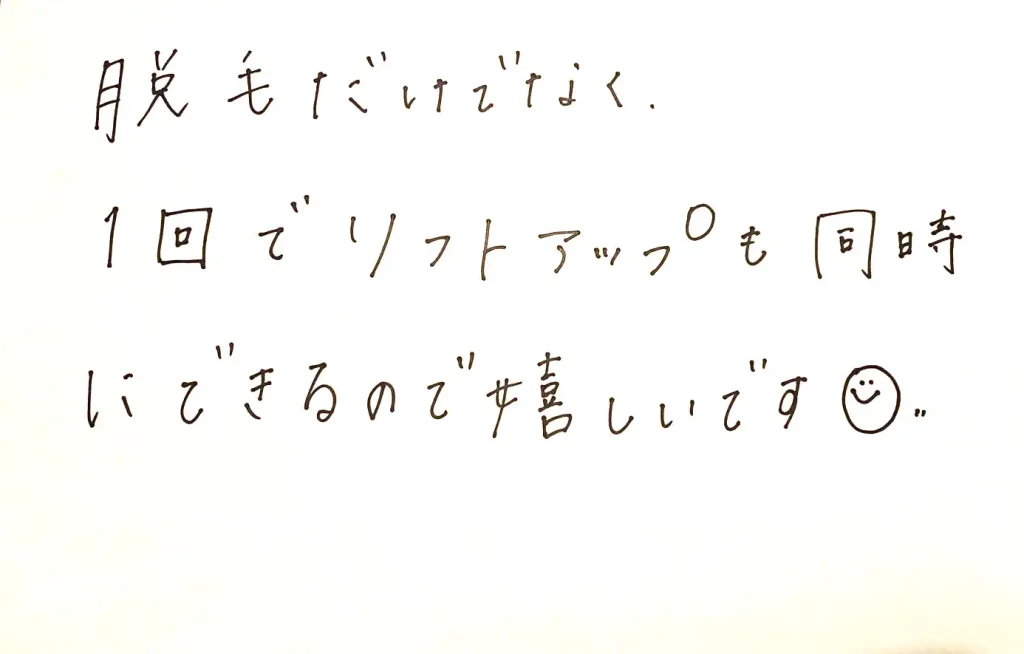 脱毛だけでなく.
1回でリフトアップも同時
にできるので嬉しいです☺..